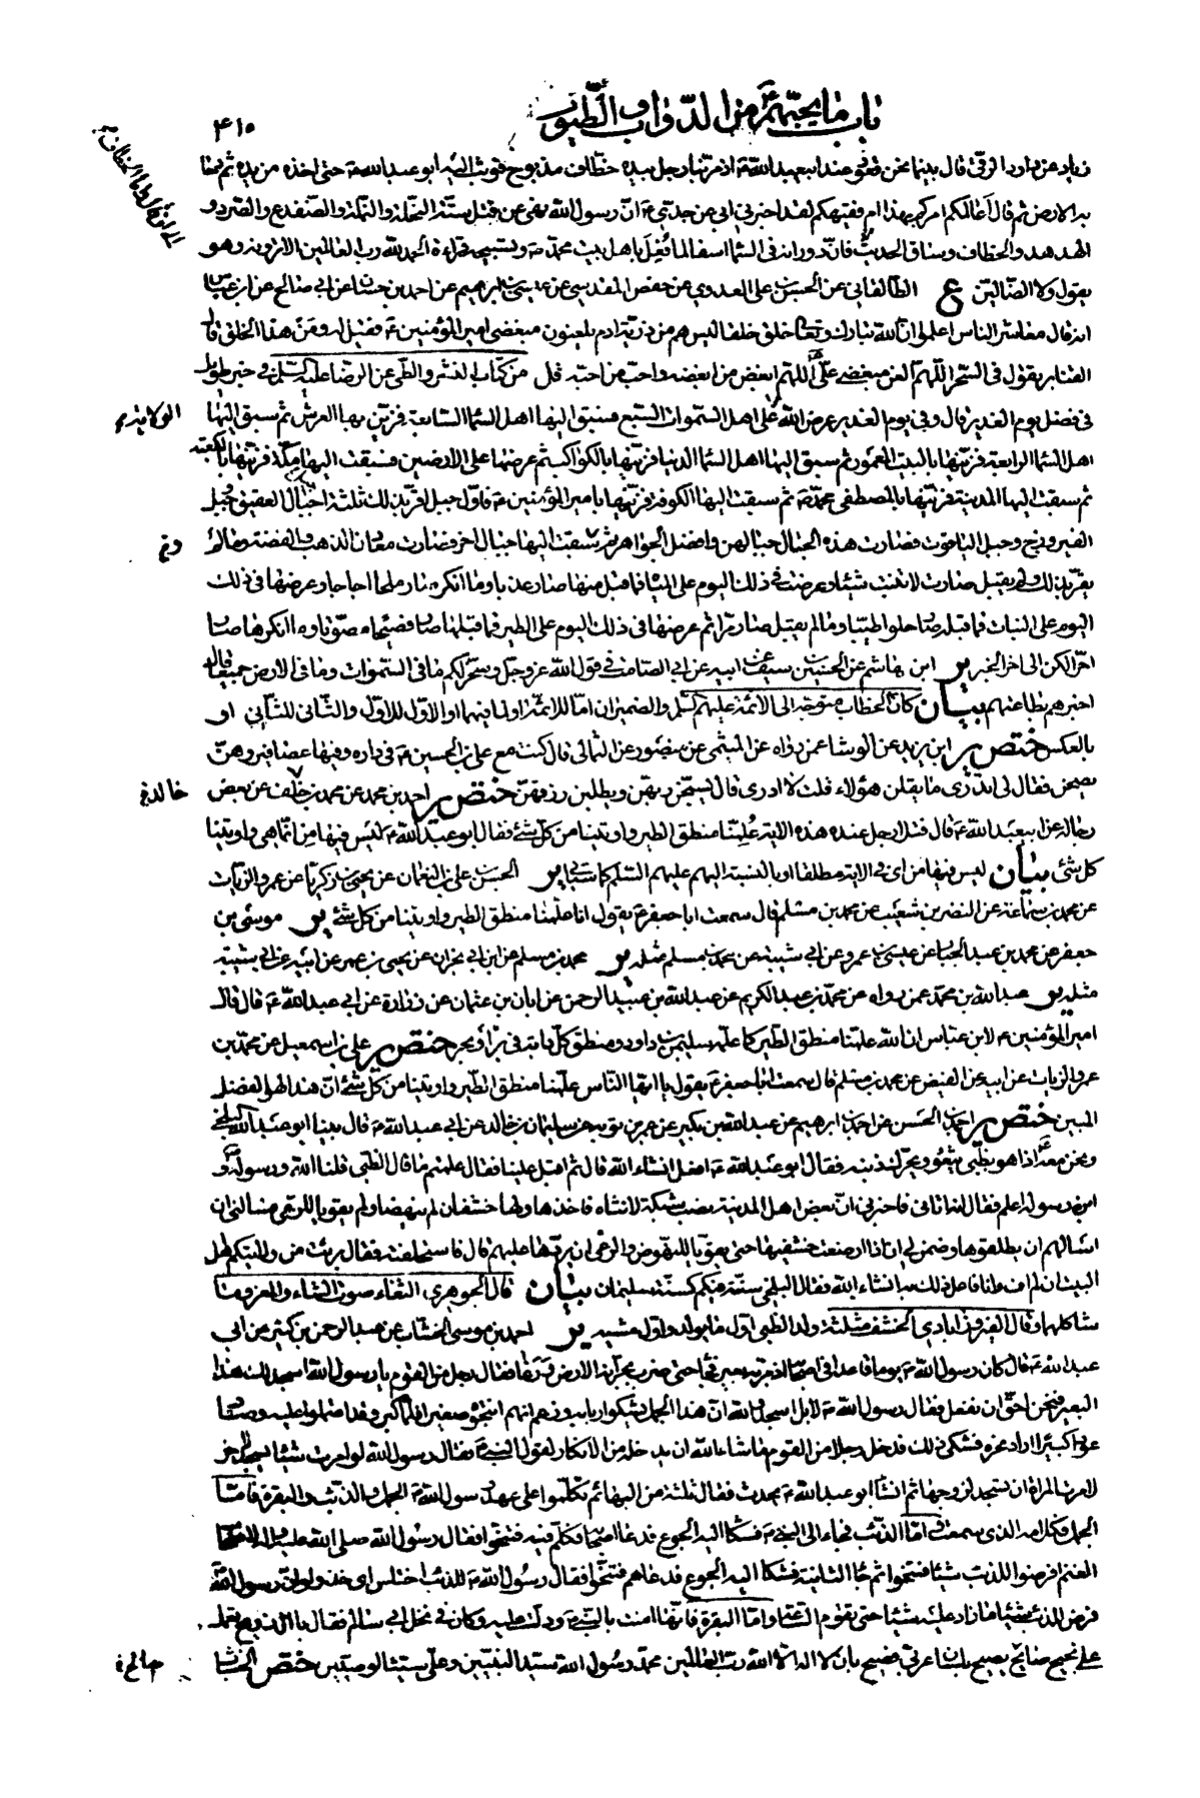 باب ما يحبهم من الدواب والطيور
٤١٥
زياد عن داود الرقي قال بينما نحن قعود عند ابيعبد الله ع اذ مر بنا رجل بيده خطاف مذبوح فوثب اليه ابو عبد الله ع حتى اخذه من يده ثم دحا
به الارض ثم قال أعالمكم امركم بهذا ام فقيهكم لقد اخبرني ابي عن جدي ع ان رسول الله نهى عن قتل ستة النحلة والنملة والضفدع والصرد و
الهدهد والخطاف وساق الحديث فان دورانه في السماء اسفا لما فعل باهل بيت محمد ص وتسبيحه قراءة الحمد لله رب العالمين الا ترونه وهو
يقول ولا الضالين ع الطالقاني عن الحسن بن علي العدوي عن حفص المقدسي عن عيسى بن ابرهيم عن احمد بن حسان عن ابي صالح عن ابن عباس
انه قال معاشر الناس اعلموا ان الله تبارك وتعالى خلق خلقا ليس هم من ذرية ادم يلعنون مبغضي امير المؤمنين ع فقيل له ومن هذا الخلق قال
القنابر يقول في السحر اللهم العن مبغضي علي اللهم ابغض من ابغضه واحب من احبه قل من كتاب النشر والطي عن الرضا عليه السلم في خبر طويل
في فضل يوم الغدير قال وفي يوم الغدير عرض الله على اهل السموات السبع فسبق اليها اهل السماء السابعة فزين بها العرش ثم سبق اليها
الولاية
اهل السماء الرابعة فزينها بالبيت المعمور ثم سبق اليها اهل السماء الدنيا فزينها بالكواكب ثم عرضها على الارضين فسبقت اليها مكة فزينها بالكعبة
ثم سبقت اليها المدينة فزينها بالمصطفى محمد ص ثم سبقت اليها الكوفة فزينها بامير المؤمنين ع فاول جبل اقر بذلك ثلثة اجبال العقيق وجبل
الفيروزج وجبل الياقوت فصارت هذه الجبال جبالهن وافضل الجواهر ثم سبقت اليها جبال اخر فصارت معادن الذهب والفضة وما لم
يقر بذلك ولم يقبل صارت لا تنبت شيئا وعرضت في ذلك اليوم على المياه فما قبل منها صار عذبا وما انكر صار ملحا اجاجا وعرضها في ذلك
اليوم على النبات فما قبله صار حلوا طيبا وما لم يقبل صار مرا ثم عرضها في ذلك اليوم على الطير فما قبلها صار فصيحا مصوتا وما انكرها صار
اخر الكن الى اخر الخبر ير ابن هاشم عن الحسين بن سيف عن ابيه عن ابي الصامت في قول الله عز وجل وسخر لكم ما في السموات وما في الارض جميعا قال
اخبرهم بطاعتهم بيان كان الخطاب متوجه الى الائمة عليهم السلم والضميران اما للائمة او لما فيهما او الاول للاول والثاني للثاني او
بالعكس ختص ير ابن يزيد عن الوشا عمن رواه عن الميثمي عن منصور عن الثمالي قال كنت مع علي بن الحسين ع في داره وفيها عصافير وهن
يصحن فقال لي اتدري ما يقلن هؤلاء قلت لا ادري قال يسبحن ربهن ويطلبن رزقهن ختص ير احمد بن محمد عن محمد بن خلف عن بعض
خالد خ
رجاله عن ابيعبد الله ع قال قتلا رجل عنده هذه الاية علمنا منطق الطير واوتينا من كل شئ فقال ابو عبد الله ع ليس فيها من انما هي واوتينا
كل شئ بيان ليس فيها من اي في الاية مطلقا او بالنسبة اليهم عليهم السلم كما سيأتي ير الحسن بن علي بن النعمان عن يحيى بن زكريا عن عمرو الزيات
عن محمد بن سماعة عن النضر بن شعيب عن محمد بن مسلم قال سمعت ابا جعفر ع يقول انا علمنا منطق الطير واوتينا من كل شئ ير موسى بن
جعفر عن محمد بن عبد الجبار عن عيسى بن عمرو عن ابي شيبة عن محمد بن مسلم مثله ير محمد بن مسلم عن ابن ابي نجران عن يحيى بن عمر عن ابيه عن ابي شيبة
مثله ير عبد الله بن محمد عمن رواه عن محمد بن عبد الكريم عن عبد الله بن عبد الرحمن عن ابان بن عثمان عن زرارة عن ابي عبد الله ع قال قال
امير المؤمنين ع لابن عباس ان الله علمنا منطق الطير كما علم سليمن بن داود ومنطق كل دابة في بر او بحر ختص ير علي بن اسمعيل عن محمد بن
عمرو الزيات عن ابيه عن الفيض عن محمد بن مسلم قال سمعت ابا جعفر ع يقول يا ايها الناس علمنا منطق الطير واوتينا من كل شئ ان هذا لهو الفضل
المبين ختص ير احمد بن الحسن عن احمد بن ابرهيم عن عبد الله بن بكير عن عمر بن توبة عن سليمان بن خالد عن ابي عبد الله ع قال بينا ابو عبد الله البلخي
ونحن معه اذا هو بظبي يثغو ويحرك ذنبه فقال ابو عبد الله ع افعل انشاء الله قال ثم اقبل علينا فقال علمتم ما قال الظبي قلنا الله ورسوله و
ابن رسوله اعلم فقال انه اتاني فاخبرني ان بعض اهل المدينة نصب شبكة لانثاه فاخذها ولها خشفان لم ينهضا ولم يقويا للرعي فسالني ان
اسالهم ان يطلقوها وضمن لي ان اذا ارضعت خشفيها حتى يقويا للنهوض والرعي ان يردها عليهم قال فاستحلفته فقال برئت من ولايتكم اهل
البيت ان لم اف وانا فاعل ذلك به انشاء الله فقال البلخي سنة فيكم كسنة سليمان بيان قال الجوهري الثغاء صوت الشاء والمعز وما
شاكلها وقال الفيروزابادي الخشف مثلثة ولد الظبي اول ما يولد واول مشيه ير احمد بن موسى الخشاب عن عبد الرحمن بن كثير عن ابي
عبد الله ع قال كان رسول الله ص يوما قاعدا في اصحابه اذ مر به بعير فجاء حتى ضرب بجرانه الارض ورغا فقال رجل من القوم يا رسول الله اسجد لك هذا
البعير فنحن احق ان نفعل فقال رسول الله ص لا بل اسجدوا لله ان هذا الجمل يشكو اربابه وزعم انهم انتجوه صغيرا فلما كبر وقد اعتملوا عليه وصار
عودا كبيرا اراد نحره فشكى ذلك فدخل رجلا من القوم ما شاء الله ان يدخله من الانكار لقول النبي ص فقال رسول الله لو امرت شيئا يسجد لاخر
لامرت المراة ان تسجد لزوجها ثم انشأ ابو عبد الله ع يحدث فقال ثلثة من البهائم تكلموا على عهد رسول الله ص الجمل والذئب والبقرة فاما
الجمل فكلامه الذي سمعت واما الذئب فجاء الى النبي ص فشكا اليه الجوع فدعا اصحابه فكلمهم فيه فتنحوا فقال رسول الله صلى الله عليه واله لاصحاب
الغنم افرضوا للذئب شيئا فتنحوا ثم جاء الثانية فشكا اليه الجوع فدعاهم فتنحوا فقال رسول الله ص للذئب اختلس اي خذ ولو ان رسول الله
فرض للذئب شيئا ما زاد عليه شيئا حتى تقوم الساعة واما البقرة فانها امنت بالنبي ص ودلت عليه وكان في نخل ابي سالم فقال يا ال ذريح تعمل
على نجيح صايح يصيح بلسان عربي فصيح بان لا اله الا الله رب العالمين محمد رسول الله سيد النبيين وعلي سيد الوصيين ختص الخشاب
صالح خ